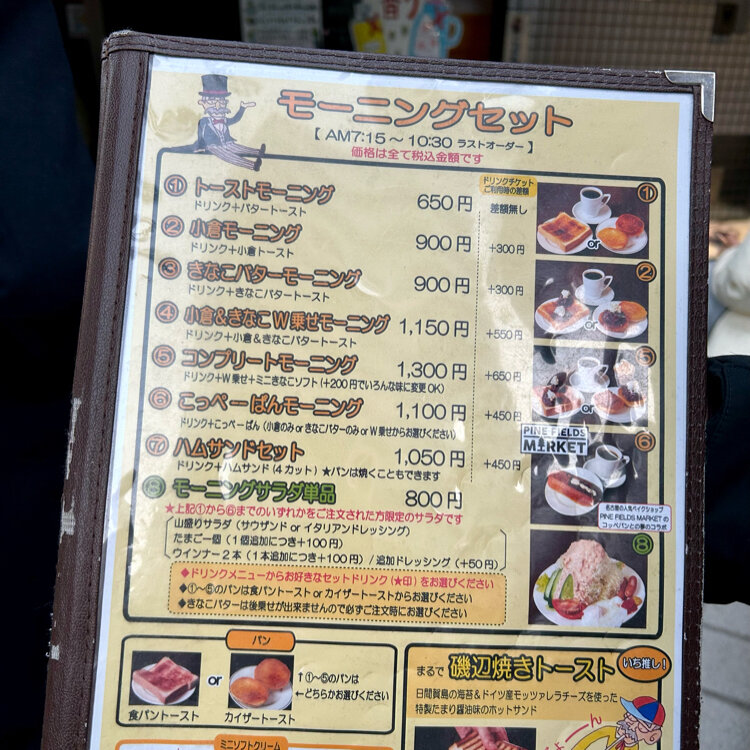 モーニングセット
【 AM7:15 〜 10:30 ラストオーダー 】
価格は全て税込金額です
ドリンクチケット
ご利用時の差額
① トーストモーニング 650円 差額無し
ドリンク+バタートースト
② 小倉モーニング 900円 +300円
ドリンク+小倉トースト
③ きなこバターモーニング 900円 +300円
ドリンク+きなこバタートースト
④ 小倉&きなこW乗せモーニング 1,150円 +550円
ドリンク+小倉&きなこバタートースト
⑤ コンプリートモーニング 1,300円 +650円
ドリンク+W乗せ+ミニきなこソフト(+200円でいろんな味に変更OK)
⑥ こっぺーぱんモーニング 1,100円 +450円
ドリンク+こっぺーぱん(小倉のみorきなこバターのみorW乗せからお選びください)
⑦ ハムサンドセット 1,050円 +450円
ドリンク+ハムサンド(4カット)★パンは焼くこともできます
⑧ モーニングサラダ単品 800円
★上記①から⑥までのいずれかをご注文された方限定のサラダです
山盛りサラダ(サウザンド or イタリアンドレッシング)
たまご一個(1個追加につき+100円)
ウインナー2本(1本追加につき+100円)/追加ドレッシング(+50円)
◆ドリンクメニューからお好きなセットドリンク(★印)をお選びください
◆①〜⑤のパンは食パントースト or カイザートーストからお選びください
◆きなこバターは後乗せが出来ませんので必ずご注文時にお伝えください
①
or
②
or
⑤
or
PINE FIELDS
MARKET
⑥
名古屋の人気ベイクショップ
PINE FIELDS MARKETの
コッペパンとの夢のコラボ
⑧
パン
or
↑①〜⑤のパンは
←どちらかお選びください
食パントースト
カイザートースト
ミニソフトクリーム
まるで 磯辺焼きトースト
いち推し!
日間賀島の海苔&ドイツ産モッツァレラチーズを使った
特製たまり醤油味のホットサンド